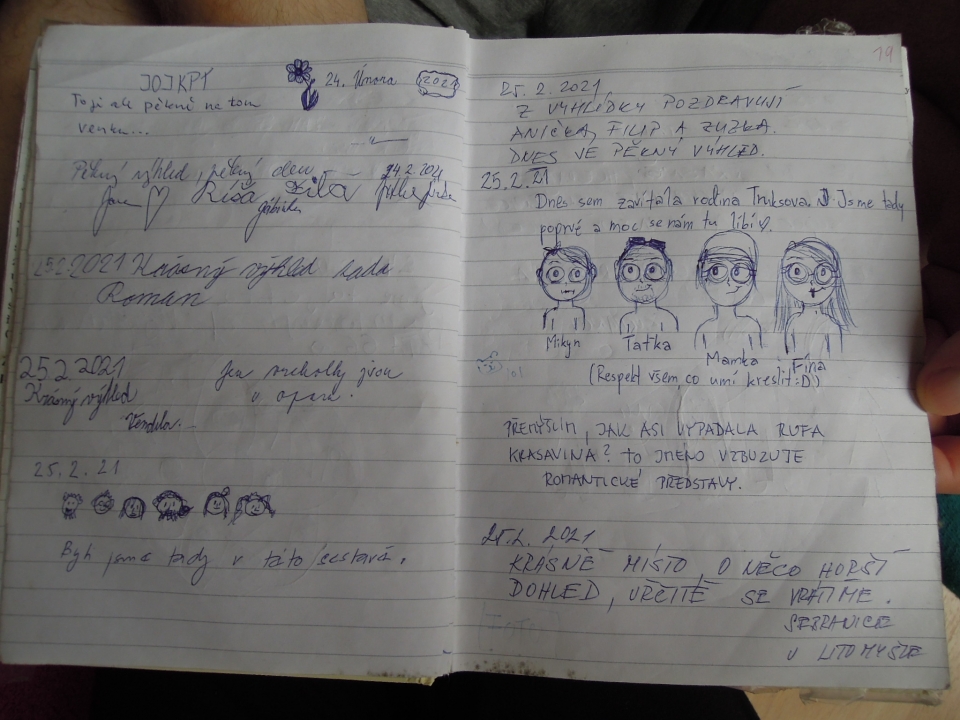 JOJKPT
24. Února 2021
To je ale pěkně na tom
venku...
Pěkný výhled, pěkný den
24.2.2021
Jana Ríša Zita
Gábinka
25.2.2021 Krásný výhled
Roman
25.2.2021
Krásný výhled
Vendula.
Jen vrcholky jsou
v oparu.
25.2.21
Byli jsme tady v této sestavě.
19
25.2.2021
Z VYHLÍDKY POZDRAVUJÍ
ANIČKA, FILIP A ZUZKA.
DNES VE PĚKNÝ VÝHLED.
25.2.21
Dnes sem zavítala rodina Truksova. :D Jsme tady
poprvé a moc se nám tu líbí ♡.
Mikyn Taťka Mamka Fína
(Respekt všem, co umí kreslit :D)
PŘEMÝŠLÍM, JAK ASI VYPADALA RUFA
KRASAVINA? TO JMÉNO VZBUZUJE
ROMANTICKÉ PŘEDSTAVY.
25.2. 2021
KRÁSNÉ MÍSTO, O NĚCO HORŠÍ
DOHLED, URČITĚ SE VRÁTÍME.
SEBRANICE
U LITOMYŠLE